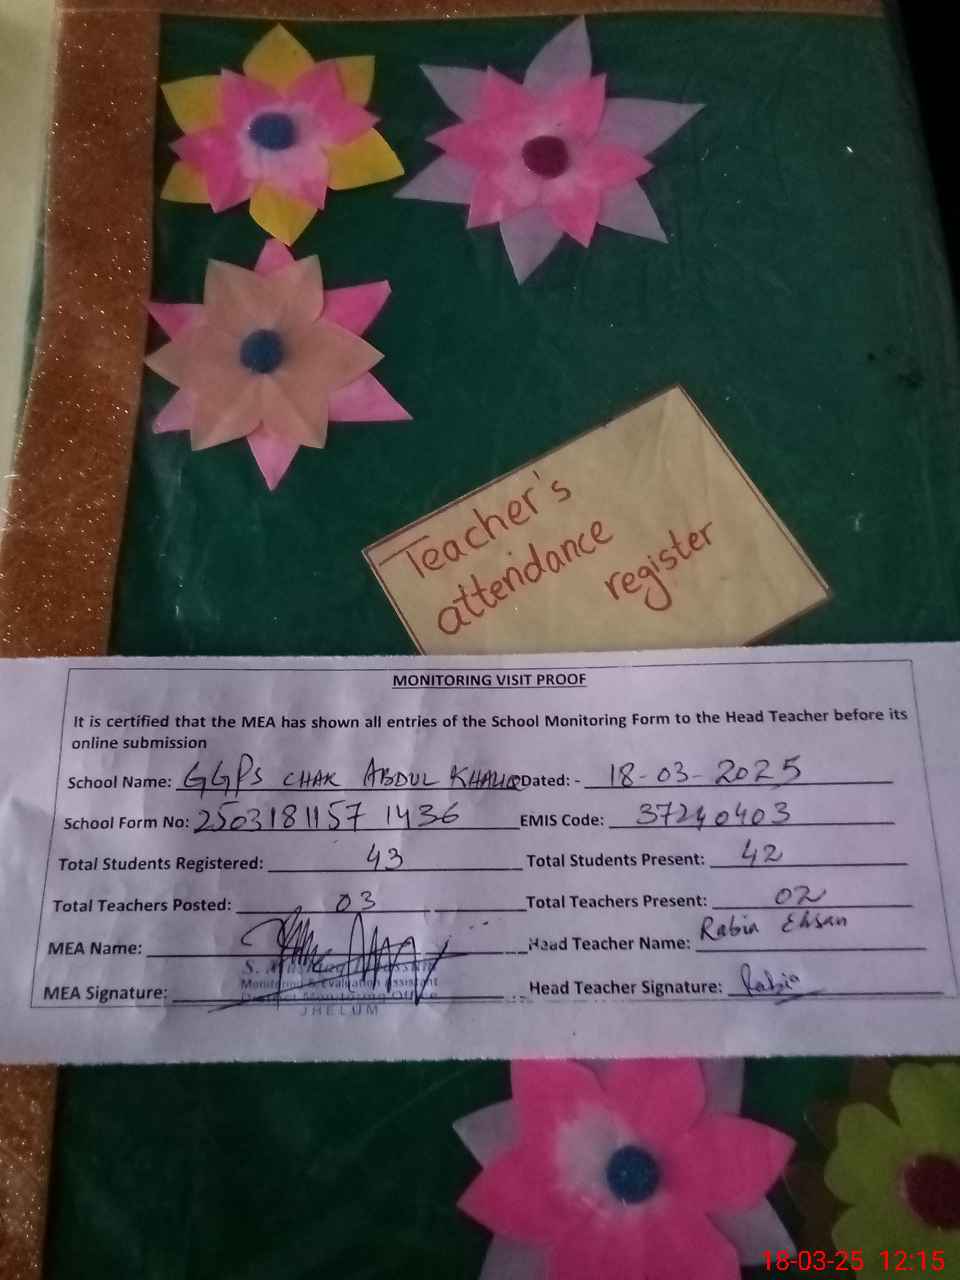 Teacher's
attendance
register
MONITORING VISIT PROOF
It is certified that the MEA has shown all entries of the School Monitoring Form to the Head Teacher before its
online submission
School Name: GGPS CHAK ABDUL KHALIQ Dated: - 18-03-2025
School Form No: 2503181157 1436 EMIS Code: 37240403
Total Students Registered: 43 Total Students Present: 42
Total Teachers Posted: 03 Total Teachers Present: 02
MEA Name: Head Teacher Name: Rabia Ehsan
Monitoring & Evaluation Assistant
MEA Signature: Head Teacher Signature: Rabia
District Monitoring Office
JHELUM
18-03-25 12:15